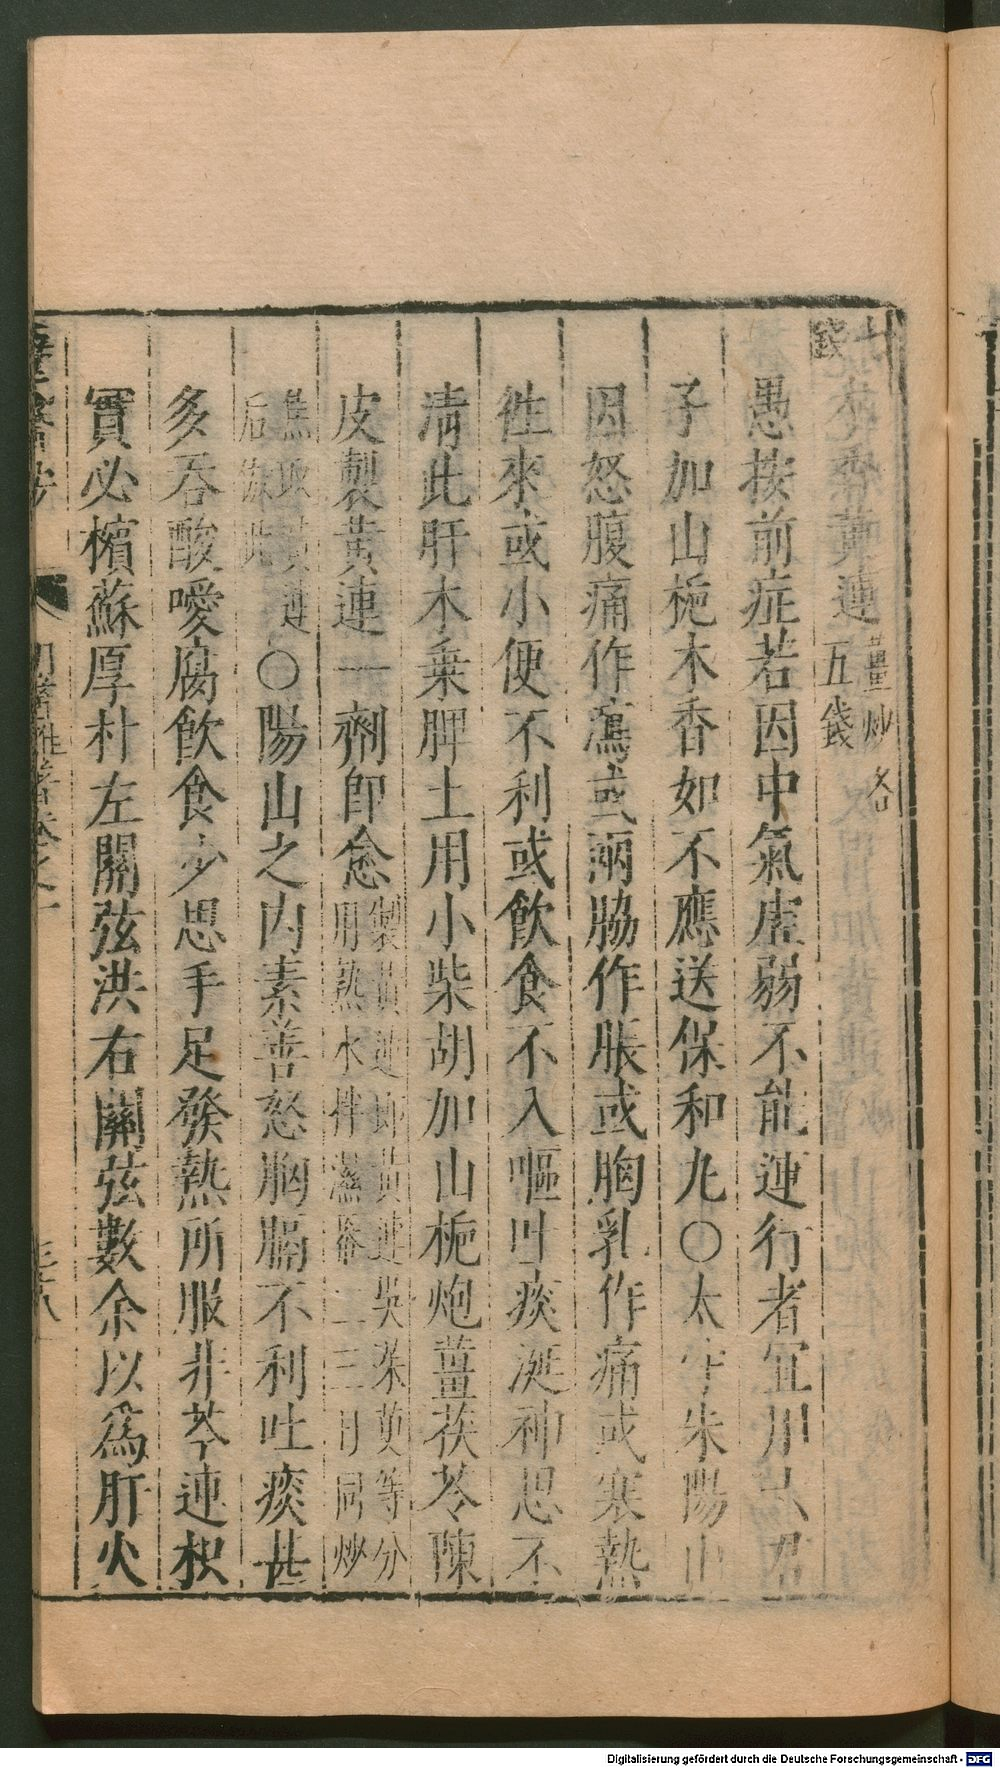 黄連薑炒各五錢
愚按前症若因中氣虛弱不能運行者宜用六君
子加山梔木香如不應送保和丸○太守朱陽山
因怒腹痛作瀉或兩脇作脹或胸乳作痛或寒熱
徃來或小便不利或飲食不入嘔吐痰涎神思不
淸此肝木乗脾土用小柴胡加山梔炮薑茯苓陳
皮製黄連一劑卽愈製黄連卽黄連吳茱萸等分用熱水拌濕罨二三日同炒
焦取黄連后倣此○陽山之内素善怒胸膈不利吐痰甚
多呑酸噯腐飲食少思手足發熱所服非芩連枳
實必檳蘇厚朴左關弦洪右關弦數余以爲肝火
Digitalisierung gefördert durch die Deutsche Forschungsgemeinschaft - DFG